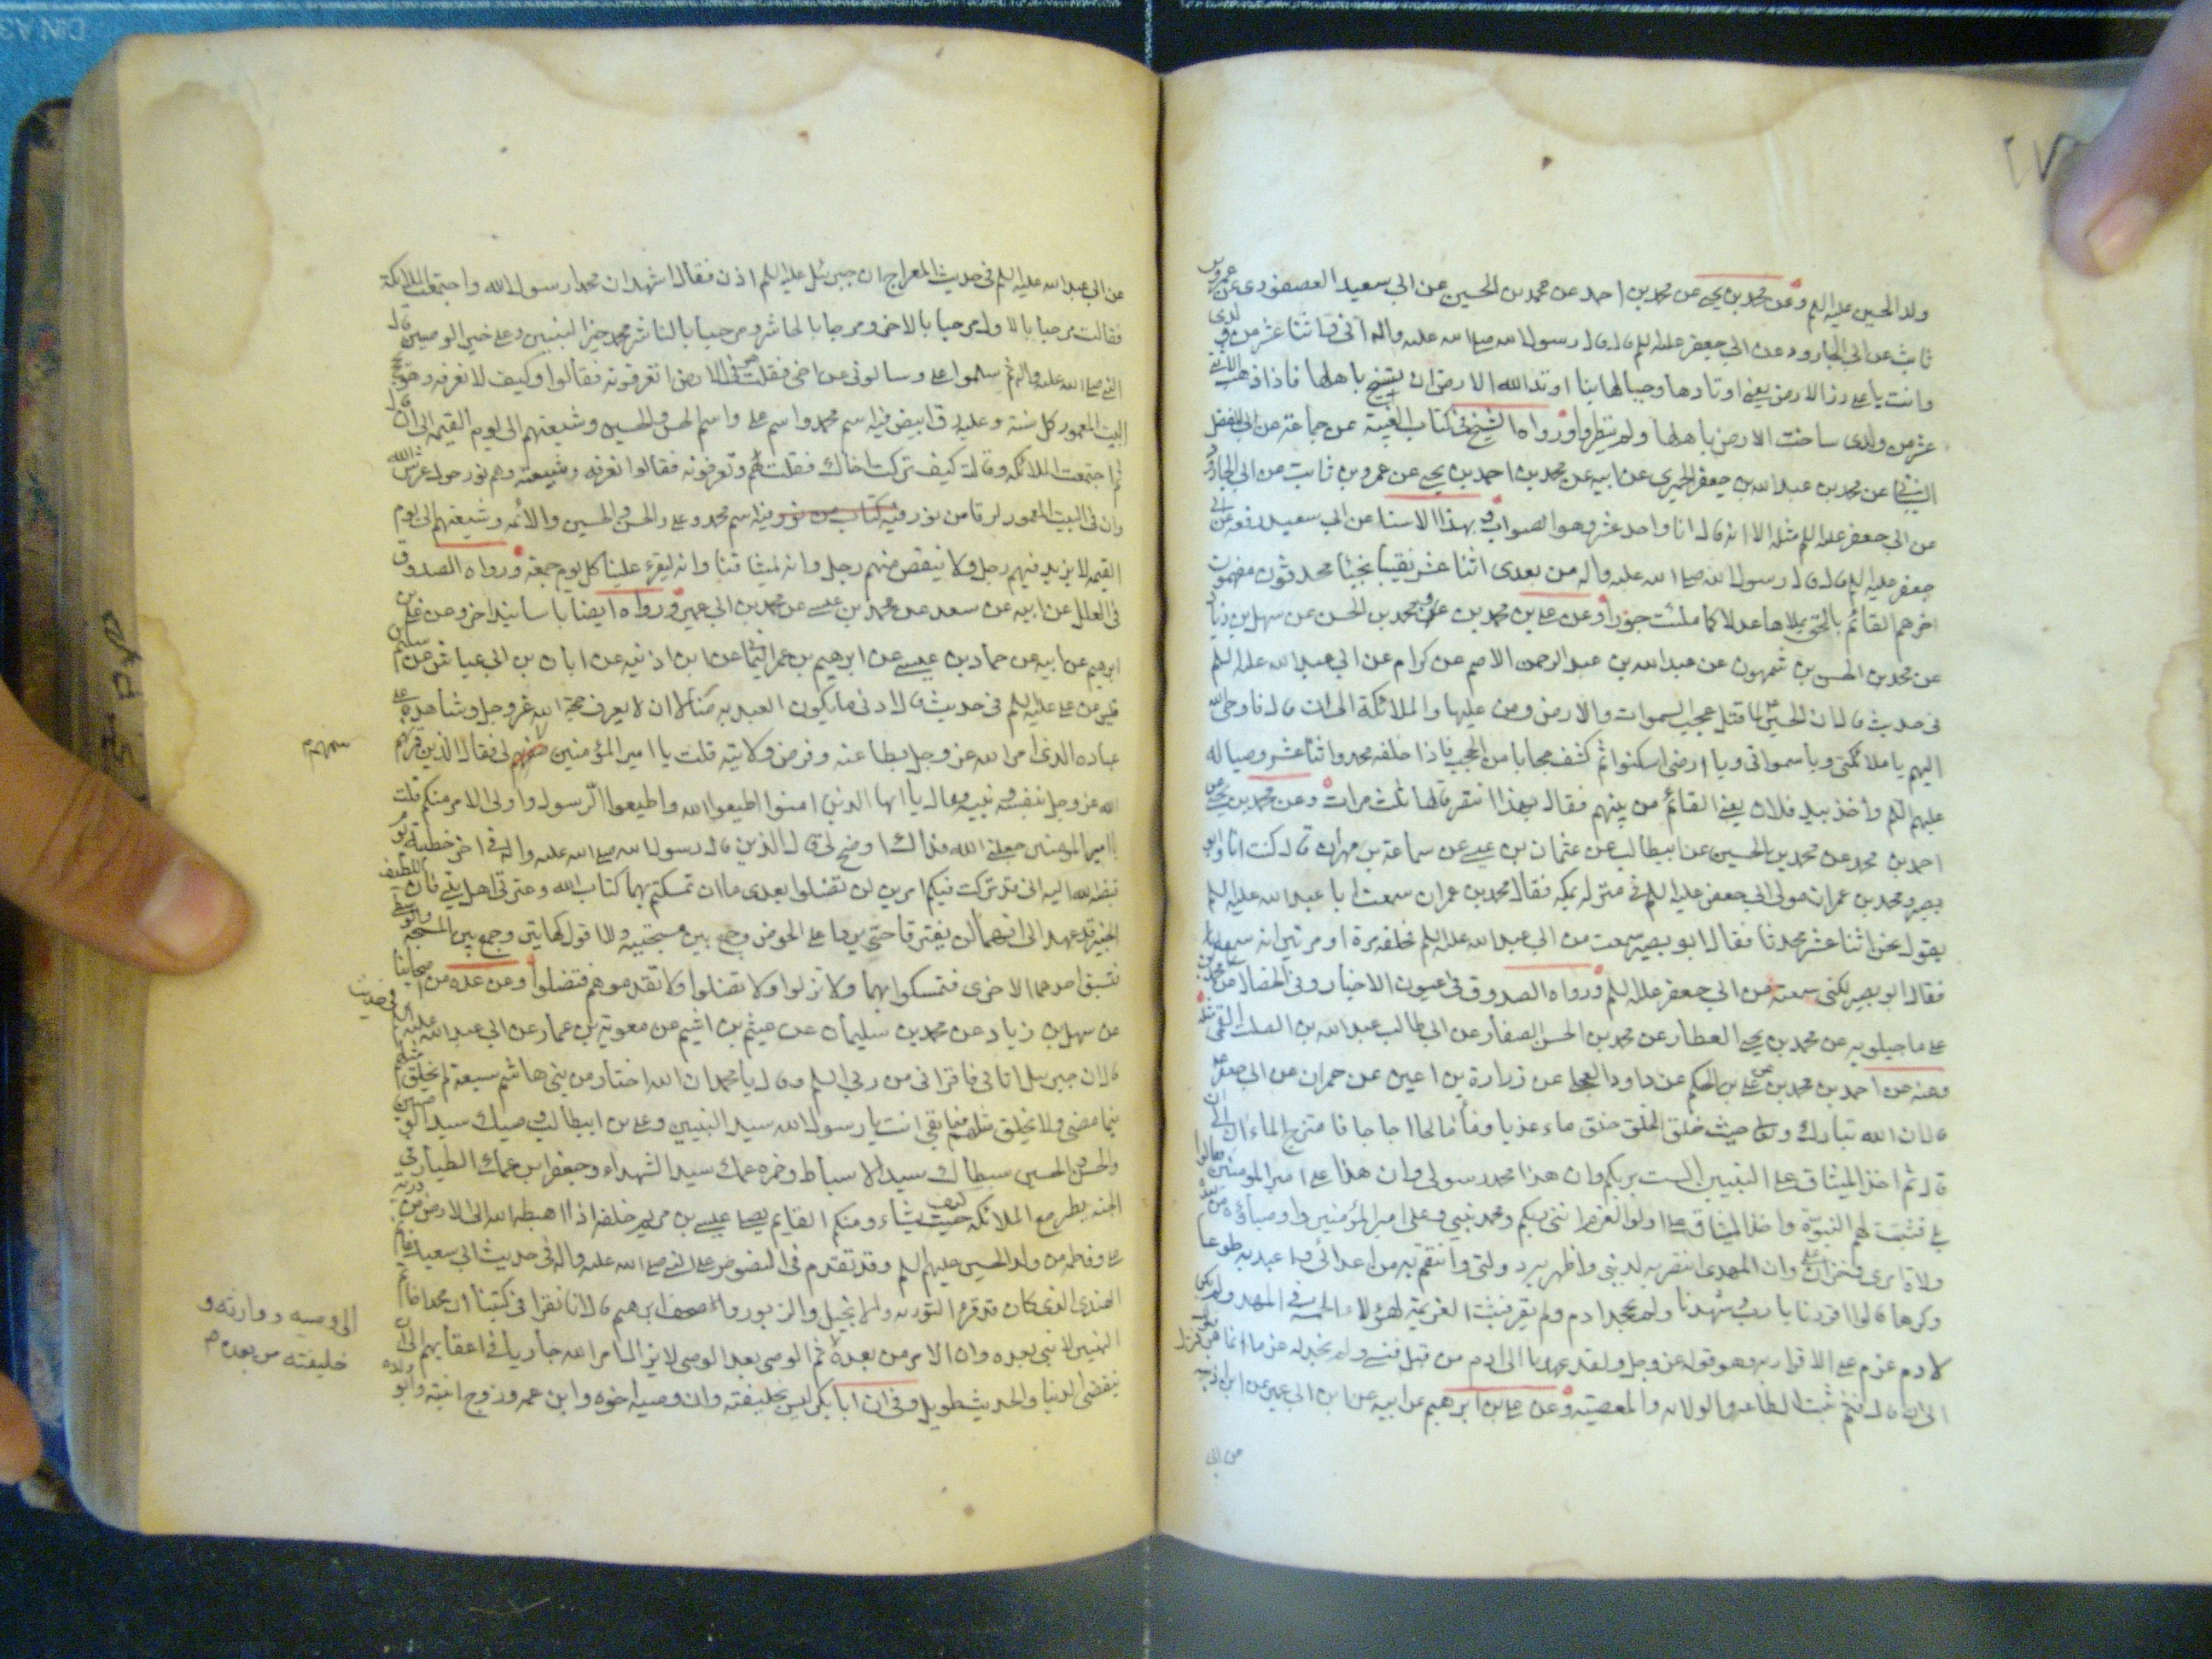 ولد الحسين عليه السلم وعن محمد بن يحيى عن محمد بن احمد عن محمد بن الحسين عن ابى سعيد العصفورى عن عمرو بن
ثابت عن ابى الجارود عن ابى جعفر عليه السلم قال قال رسول الله صلى الله عليه واله انى واثنا عشر من ولدى
وانت يا على رز الارض يعنى اوتادها وجبالها بنا اوتد الله الارض ان تسيخ باهلها فاذا ذهب الاثنا
عشر من ولدى ساخت الارض باهلها ولم ينظروا ورواه الشيخ فى كتاب الغيبة عن جماعة عن ابى المفضل
الشيبانى عن محمد بن عبد الله بن جعفر الحميرى عن ابيه عن محمد بن احمد بن يحيى عن عمرو بن ثابت عن ابى الجارود
عن ابى جعفر عليه السلم مثله الا انه قال انا واحد عشر وهو الصواب وبهذا الاسناد عن ابى سعيد رفعه عن ابى
جعفر عليه السلم قال قال رسول الله صلى الله عليه واله من بعدى اثنا عشر نقيبا نجبا محدثون مفهمون
اخرهم القائم بالحق يملاها عدلا كما ملئت جورا وعن على بن محمد بن محمد بن الحسن عن سهل بن زياد
عن محمد بن الحسن بن شمون عن عبد الله بن عبد الرحمن الاصم عن كرام عن ابى عبد الله عليه السلم
فى حديث قال ان الحسين لما قتل عجت السموات والارض ومن عليها والملائكة الى ان قال فاوحى الله
اليهم يا ملائكتى ويا سمواتى ويا ارضى اسكنوا ثم كشف حجابا من الحجب فاذا خلفه محمد واثنا عشر وصيا له
عليهم السلم واخذ بيد فلان يعنى القائم من بينهم فقال بهذا انتصر قالها ثلث مرات وعن محمد بن يحيى عن
احمد بن محمد عن محمد بن الحسين عن ابيطالب عن عثمان بن عيسى عن سماعة بن مهران قال كنت انا وابو
بصير ومحمد بن عمران مولى ابى جعفر عليه السلم فى منزله بمكه فقال محمد بن عمران سمعت ابا عبد الله عليه السلم
يقول نحن اثنا عشر محدثا فقال ابو بصير سمعت من ابى عبد الله عليه السلم فحلفه مرة او مرتين انه سمعه
فقال ابو بصير لكنى سمعته من ابى جعفر عليه السلم ورواه الصدوق فى عيون الاخبار وفى الخصال عن محمد بن
على ماجيلويه عن محمد بن يحيى العطار عن محمد بن الحسن الصفار عن ابى طالب عبد الله بن الصلت القمى مثله
وعنه عن احمد بن محمد عن على بن الحكم عن داود العجلى عن زرارة بن اعين عن حمران عن ابى جعفر
قال ان الله تبارك وتعالى حيث خلق الخلق خلق ماء عذبا وماء مالحا اجاجا فامتزج الماءان الى ان
قال ثم اخذ الميثاق على النبيين الست بربكم وان هذا محمد رسولى وان هذا على امير المؤمنين قالوا
بلى فثبتت لهم النبوة واخذ الميثاق على اولوا العزم اننى ربكم ومحمد نبيى وعلى امير المؤمنين واوصياؤه من بعده
ولاة امرى وخزان علمى وان المهدى انتصر به لدينى واظهر به دولتى وانتقم به من اعدائى واعبد به طوعا
وكرها قالوا اقررنا يا رب وشهدنا ولم يجحد ادم ولم يقر فثبتت العزيمة لهؤلاء الخمسة فى المهدى ولم يكن
لادم عزم على الاقرار به وهو قوله عز وجل ولقد عهدنا الى ادم من قبل فنسى ولم نجد له عزما
الى ان قال فثم ثبت الطاعه والولايه والمعصيته وعن على بن ابرهيم عن ابيه عن ابن ابى عمير عن ابن اذينه
عن ابى
عن ابى عبد الله عليه السلم فى حديث المعراج ان جبرئيل عليه السلم اذن فقال اشهد ان محمدا رسول الله واجتمعت الملائكة
فقالت مرحبا بالاول مرحبا بالاخر ومرحبا بالحاشر ومرحبا بالناشر محمد خير النبيين وعلى خير الوصيين قال
النبى صلى الله عليه واله ثم سلموا على وسالونى عن اخى فقلت هو فى الارض اتعرفونه فقالوا وكيف لا نعرفه وهو نحج
البيت المعمور كل سنة وعليه رق ابيض فيه اسم محمد واسم على واسم الحسن والحسين وشيعتهم الى يوم القيمه الى ان قال
ثم اجتمعت الملائكه وقالت كيف تركت اخاك فقلت لهم وتعرفونه فقالوا نعرفه وشيعته وهم نور حول عرش الله
وان فى البيت المعمور لرقا من نور فيه كتاب من نور فيه اسم محمد وعلى والحسن والحسين والائمه وشيعتهم الى يوم
القيمه لا يزيد فيهم رجل ولا ينقص منهم رجل وانه لميثاقنا وانه ليقرء علينا كل يوم جمعة ورواه الصدوق
فى العلل عن ابيه عن سعد عن محمد بن عيسى عن محمد بن ابى عمير ورواه ايضا باسانيد اخر وعن على بن
ابرهيم عن ابيه عن حماد بن عيسى عن ابرهيم بن عمر اليمانى عن ابن اذينه عن ابان بن ابى عياش عن سليم بن
قيس عن على عليه السلم فى حديث قال ادنى ما يكون العبد به ضالا ان لا يعرف حجة الله عز وجل وشاهده على
عباده الذى امر الله عز وجل بطاعته وفرض ولايته قلت يا امير المؤمنين لى فقال الذين قرنهم
سمهم م
الله عز وجل بنفسه ونبيه وقال يا ايها الذين امنوا اطيعوا الله واطيعوا الرسول واولى الامر منكم قلت
يا امير المؤمنين جعلنى الله فداك اوضح لى قال الذين قال رسول الله صلى الله عليه واله فى اخر خطبته يوم
قبضه الله اليه انى قد تركت فيكم امرين لن تضلوا بعدى ما ان تمسكتم بهما كتاب الله وعترتى اهل بيتى فان اللطيف
الخبير قد عهد الى انهما لن يفترقا حتى يردا على الحوض وجمع بين مسبحتيه ولا اقول كهاتين وجمع بين المسبحه والوسطى
فتسبق احدهما الاخرى فتمسكوا بهما ولا تزلوا ولا تضلوا ولا تقدموهم فتضلوا وعن عده من اصحابنا
عن سهل بن زياد عن محمد بن سليمان عن هيثم بن اشيم عن معوية بن عمار عن ابى عبد الله عليه السلم فى حديث
قال ان جبرئيل اتانى فاقرانى من ربى السلم وقال يا محمد ان الله اختار من بنى هاشم سبعة لم يخلق مثلهم
فيما مضى ولا يخلق مثلهم فيما بقى انت يا رسول الله سيد النبيين وعلى بن ابيطالب وصيك سيد الوصيين
والحسن والحسين سبطاك سيدا الاسباط وحمزه عمك سيد الشهداء وجعفر ابن عمك الطيار فى
الجنه يطير مع الملائكه حيث يشاء ومنكم القايم يصلى عيسى بن مريم خلفه اذا اهبطه الله الى الارض من ذرية
على وفاطمه من ولد الحسين عليهم السلم وقد تقدم فى النصوص على النبى صلى الله عليه واله فى حديث ابى سعيد غانم
الهندى الذى كان قد قرء التورية والانجيل والزبور وصحف ابرهيم قال انا نقرا فى كتبنا ان محمدا خاتم
النبيين لا نبى بعده وان الامر من بعده ثم الوصى بعد الوصى لا يزال امر الله جاريا فى اعقابهم الى ان
الى وصيه ووارثه و
خليفته من بعده م
تنقضى الدنيا والحديث طويل وفى ان ابا بكر ليس بخليفته وان وصيه اخوه وابن عمه وزوج ابنته وابو ولده